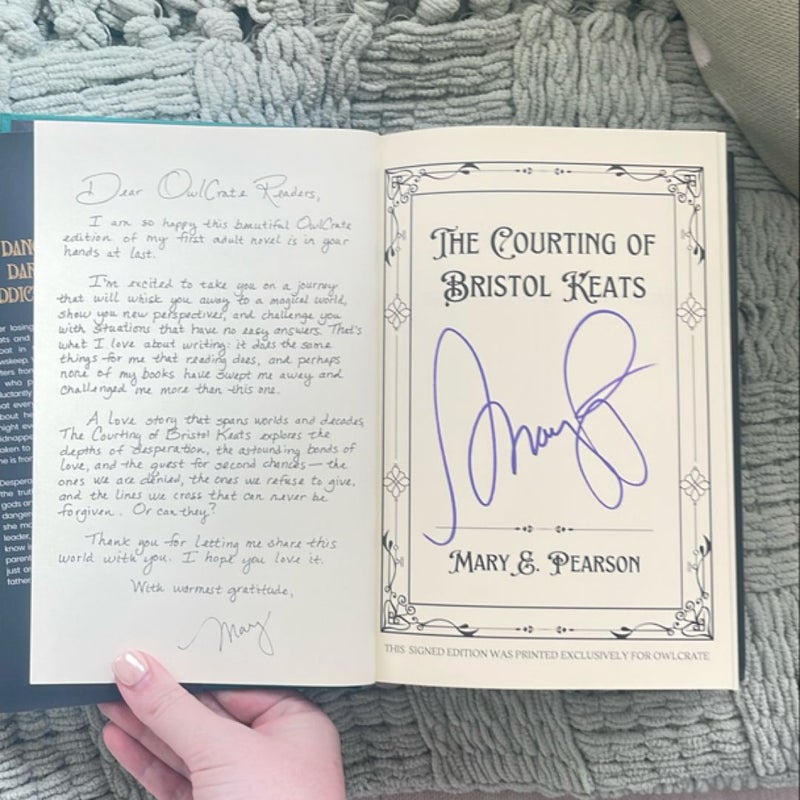 DAN
DAR
DDIC
er losing
ats and
oat in
wskeep,
ters from
who p
luctantly
at every
bout he
night ev
kidnapp
aken to
e is fro
Despera
the trut
gods an
danger
she mo
leader,
know i
parent
just a
father
Dear OwlCrate Readers,
I am so happy this beautiful OwlCrate
edition of my first adult novel is in your
hands at last.
I'm excited to take you on a journey
that will whisk you away to a magical world,
show you new perspectives, and challenge you
with situations that have no easy answers. That's
what I love about writing: it does the same
things for me that reading does, and perhaps
none of my books have swept me away and
challenged me more than this one.
A love story that spans worlds and decades,
The Courting of Bristol Keats explores the
depths of desperation, the astounding bonds of
love, and the quest for second chances — the
ones we are denied, the ones we refuse to give,
and the lines we cross that can never be
forgiven. Or can they?
Thank you for letting me share this
world with you. I hope you love it.
With warmest gratitude,
Mary
THE COURTING OF
BRISTOL KEATS
Mary
MARY E. PEARSON
THIS SIGNED EDITION WAS PRINTED EXCLUSIVELY FOR OWLCRATE